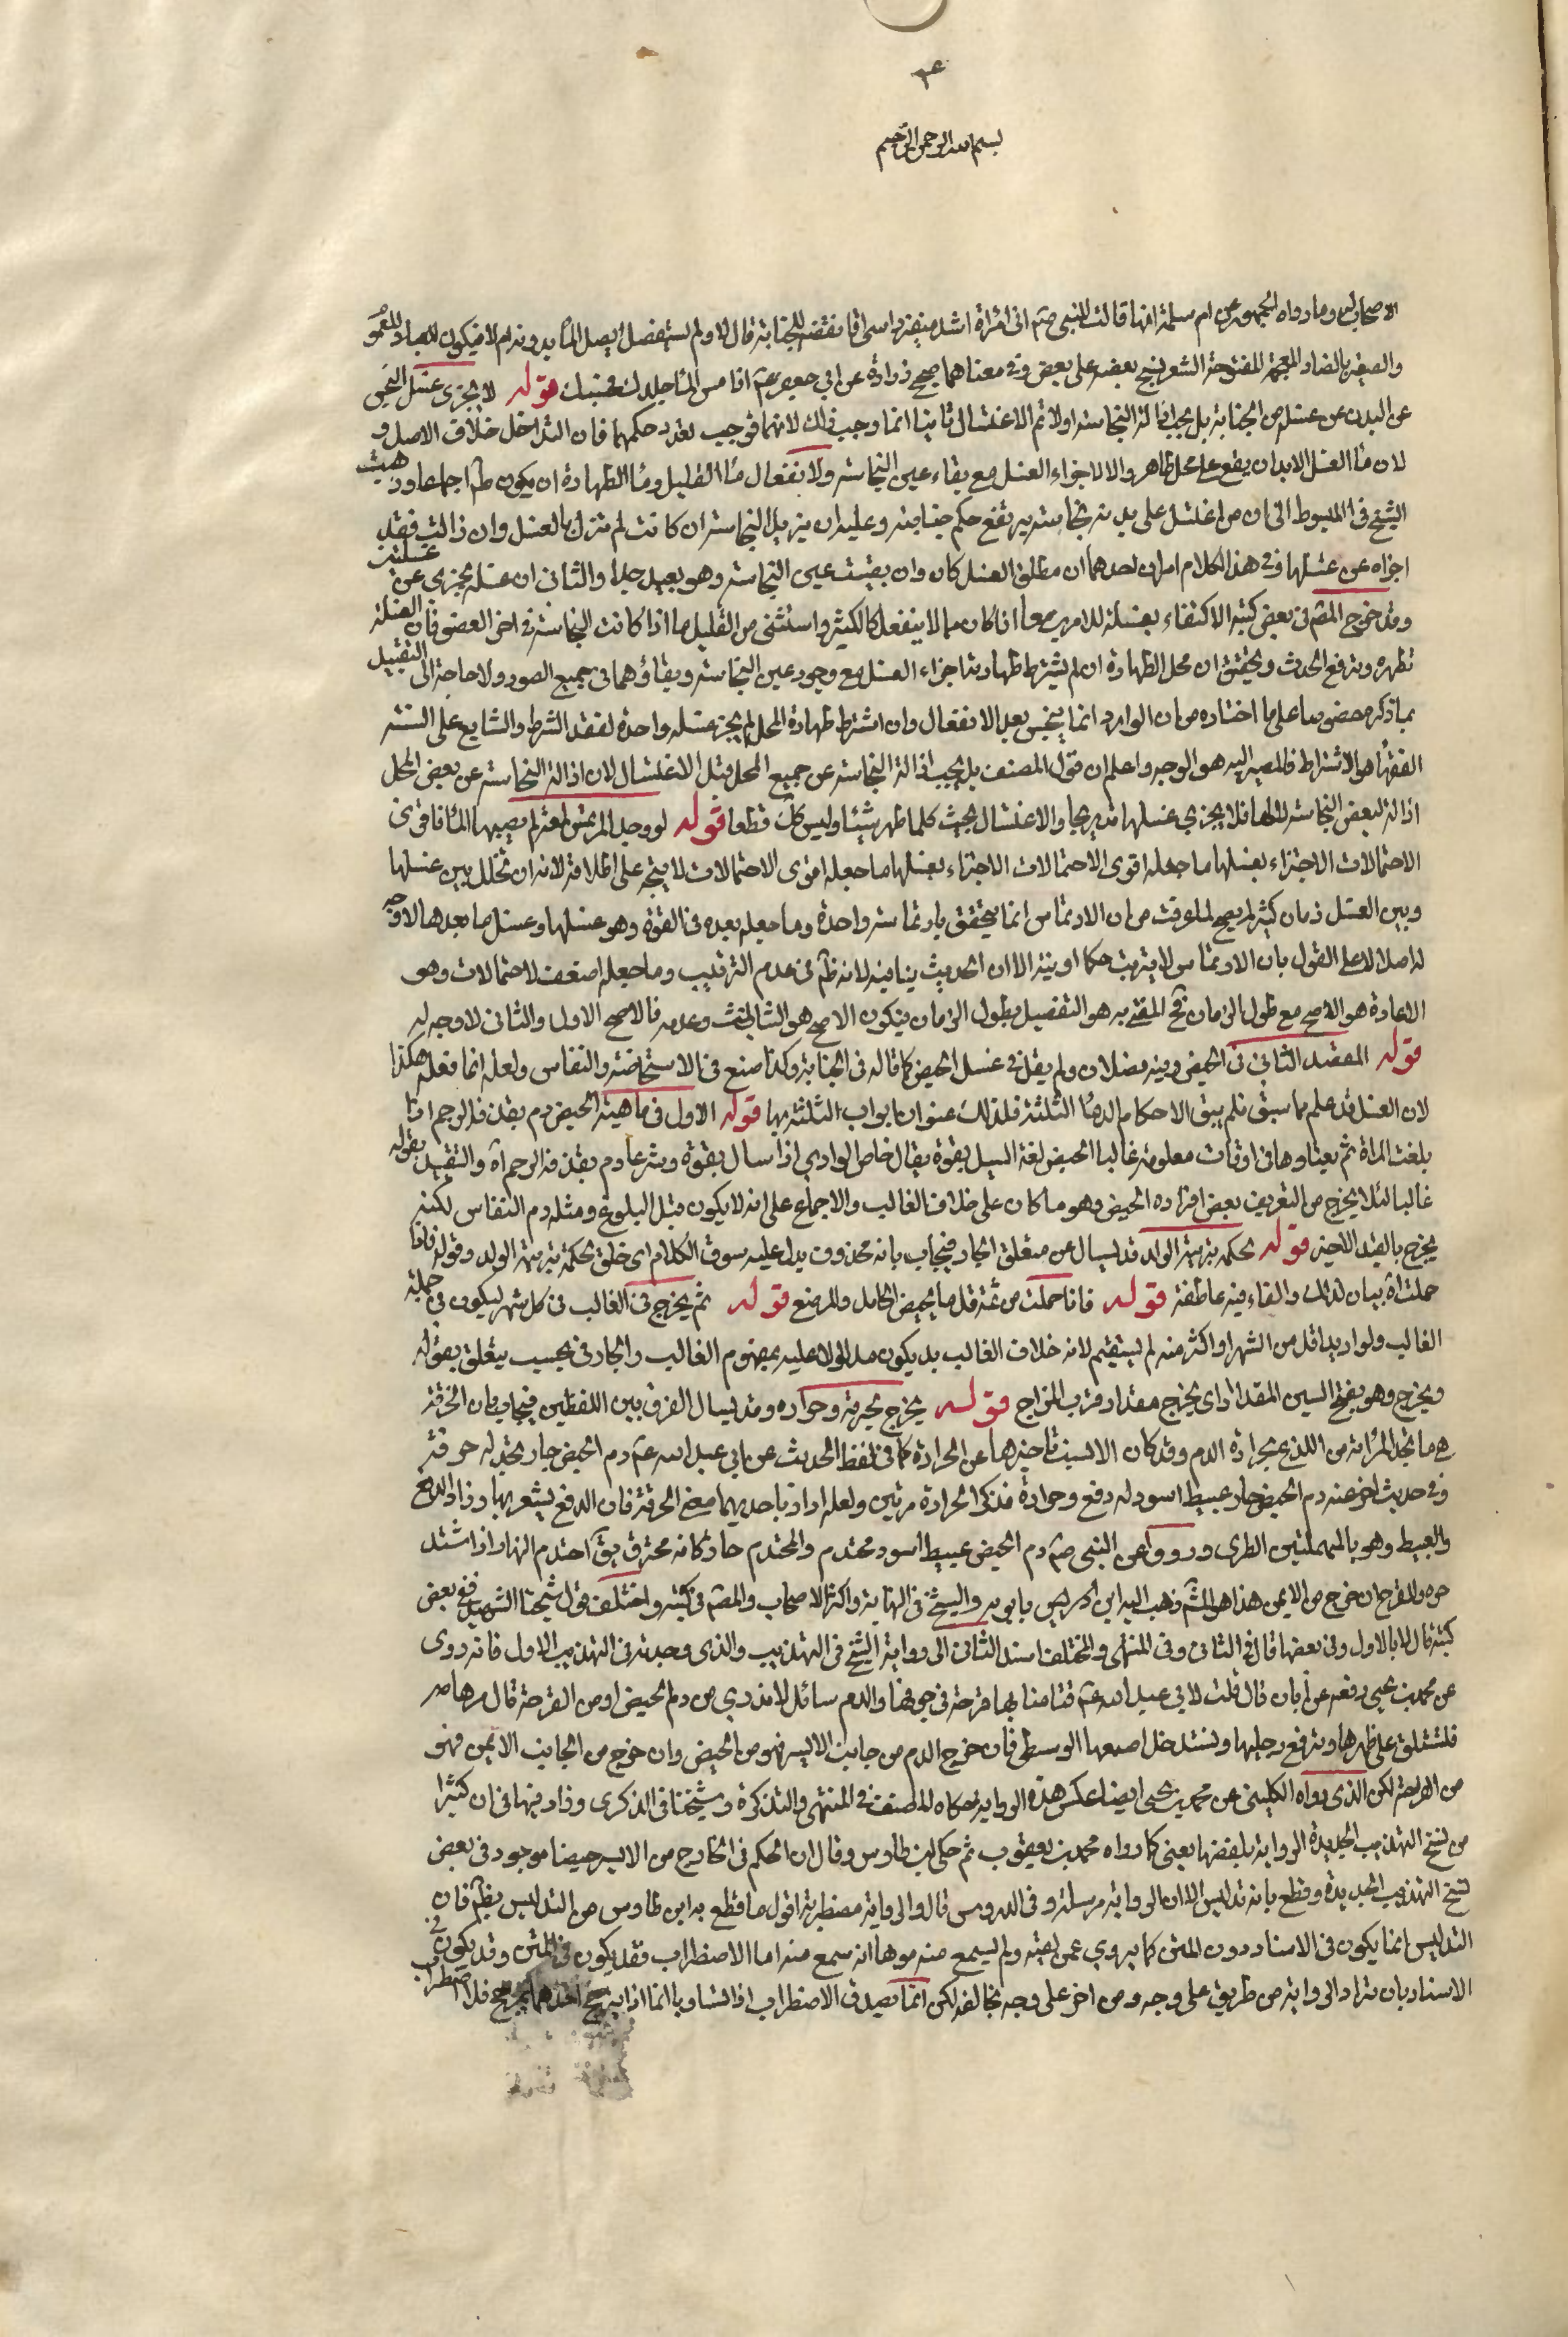 بسم الله الرحمن الرحيم
الاصحاب وما رواه الجمهور عن ام سلمة انها قالت للنبي صم اني امراة اشد ضفيرة راسي افانقضه للجنابة قال لا ولم يستفصل ايصل الماء بدونه ام لا فيكون للعموم
والضفيرة بالضاد المعجمة المفتوحة الشعر ينسج بعضه على بعض وفي معناهما صحيح زرارة عن ابي جعفر عم اذا مس الماء جلدك فحسبك قوله لا يجزى غسل النجس
عن البدن عن غسله من الجنابة بل يجب ازالة النجاسة اولا ثم الاغتسال ثانيا انما وجب ذلك لانهما توجب تعدد حكمهما فان التداخل خلاف الاصل و
لان ماء الغسل لابد ان يقع على محل طاهر والا لاجزاء الغسل مع بقاء عين النجاسة ولانفعال ماء القليل وماء الطهارة ان يكون طاهرا اجماعا وذهب
الشيخ في المبسوط الى ان من اغتسل على بدنه نجاسته يرتفع حكم جنابته وعليه ان يزيل النجاسة ان كانت لم تزل بالغسل وان زالت فقد
اجزاه عن غسلها وفي هذا الكلام امران احدهما ان مطلق الغسل كان وان بقيت عين النجاسة وهو بعيد جدا والثاني ان غسله يجزى عن غسلين
وقد خرج المصم في بعض كتبه الاكتفاء بغسلة للامرين معا اذا كان مما لا ينفعل كالكثير واستثنى من القليل ما اذا كانت النجاسة في اخر العضو فان الغسلة
تطهره وترفع الحدث والتحقيق ان محل الطهارة ان لم يشترط طهارته اجزاء الغسل مع وجود عين النجاسة وبقاؤهما في جميع الصور ولا حاجة الى التقييد
بما ذكره خصوصا على ما اختاره من ان الوارد انما ينجس بعد الانفصال وان اشترط طهارة المحل لم يجز غسلة واحدة لفقد الشرط والشايع على السنة
الفقهاء هو الاشتراط فالمصير اليه هو الوجه واعلم ان قول المصنف بل يجب ازالة النجاسة عن جميع المحل قبل الاغتسال لان ازالة النجاسة عن بعض المحل
ازالة لبعض النجاسة لا لها فلا يجزي غسلها تدريجا والاغتسال بحيث كلما طهر شيئا وليس كك قطعا قوله لو وجد المرتمس لمعة لم يصبها الماء فاقوى
الاحتمالات الاجتزاء بغسلها ما جعله اقوى الاحتمالات الاجتزاء بغسلها ما جعله اقوى الاحتمالات لا يتجه على اطلاقه لانه ان تخلل بين غسلها
وبين الغسل زمان كثير لم يصح لما عرفت من ان الارتماس انما يتحقق بارتماسة واحدة وما جعله بعده في القوة وهو غسلها وغسل ما بعدها لا وجه
له اصلا الا على القول بان الارتماس لا يترتب حكما او نية الا ان الحديث ينافيه لانه ظم في عدم الترتيب وما جعله اضعف الاحتمالات وهو
الاعادة هو الاصح مع طول الزمان فح المفتي به هو التفصيل بطول الزمان فيكون الاصح هو الثالث وعدمه فالاصح الاول والثاني لا وجه له
قوله المقصد الثاني في الحيض وفيه فصلان ولم يقل في غسل الحيض كما قاله في الجنابة وكذا صنع في الاستحاضة والنفاس ولعله انما فعله هكذا
لان الغسل قد علم مما سبق فلم يبق الا احكام الدماء الثلثة فلذلك عنوان ابواب الثلثة بها قوله الاول في ماهيته الحيض دم يقذفه الرحم اذا
بلغت المراة ثم يعتادها في اوقات معلومة غالبا الحيض لغة السيل بقوة يقال حاض الوادي اذا سال بقوة وشرعا دم يقذفه الرحم آه والتقييد بقوله
غالبا لئلا يخرج من التعريف بعض افراده الحيض وهو ما كان على خلاف الغالب والاجماع على انه لا يكون قبل البلوغ ومثله دم النفاس لكنه
يخرج بالقيد الاخير قوله لحكمة تربية الولد قد يسال عن متعلق الجار فيجاب بانه محذوف يدل عليه سوق الكلام اى خلق لحكمة تربية الولد وقوله فاذا
حملت آه بيان لذلك والفاء فيه عاطفة قوله فاذا حملت من ثمة قل ما يحيض الحامل والمرضع قوله ثم يخرج في الغالب في كل شهر ليكون في جملة
الغالب ولو اريد اقل من الشهر او اكثر منه لم يستقم لانه خلاف الغالب بل يكون مدلولا عليه بمفهوم الغالب والجار في بحسب يتعلق بقوله
ويخرج وهو بفتح السين المقدار اى يخرج مقدار قرب المزاج قوله يخرج بحرقة وحرارة وقد يسال الفرق بين اللفظين فيجاب بان الحرقة
هي ما تجد المراة من اللذع بحرارة الدم وقد كان الانسب تاخيرها عن الحرارة كما في لفظ الحديث عن ابي عبد الله عم دم الحيض حار تجد له حرقة
وفي حديث اخر عنه دم الحيض حار عبيط اسود له دفع وحرارة فذكر الحرارة مرتين ولعله اراد باحديهما معنى الحرقة فان الدفع يشعر بها وزاد الدفع
والعبيط وهو بالمهملتين الطرى ورووا عن النبي صم دم الحيض عبيط اسود محتدم والمحتدم حار كانه محترق يق احتدم النهار اذا اشتد
حره والقرح ان خرج من الايمن هذا هو المشم وذهب اليه ابن ادريس بابويه والشيخ في النهاية واكثر الاصحاب والمصم في كتبه واختلف قول شيخنا الشهيد ففي بعض
كتبه قال بالاول وفي بعضها قال بالثاني وفي المنتهى والمختلف اسند الثاني الى رواية الشيخ في التهذيب والذي وجدته في التهذيب الاول فانه روى
عن محمد بن يحيى رفعه عن ابان قال قلت لابي عبد الله عم فتاة منا بها قرحة في جوفها والدم سائل لا تدري من دم الحيض او من القرحة قال مرها
فلتستلق على ظهرها وترفع رجليها وتستدخل اصبعها الوسطى فان خرج الدم من جانب الايسر فهو من الحيض وان خرج من الجانب الايمن فهو
من القرحة لكن الذي رواه الكليني عن محمد بن يحيى ايضا عكس هذه الرواية حكاه المصنف في المنتهى والتذكرة وشيخنا في الذكرى وزاد فيها في ان كثيرا
من نسخ التهذيب الجديدة الرواية بلفظها بعينى كما رواه محمد بن يعقوب ثم حكى ابن طاوس وقال ان الحكم في الخارج من الايسر حيضا موجود في بعض
نسخ التهذيب الجديدة وقطع بانه تدليس الا ان الرواية مرسلة وفي الدروس قال والرواية مضطربة اقول ما قطع به ابن طاوس من التدليس يظم فان
التدليس انما يكون في الاسناد دون المتن كما يروي عمن لقيته ولم يسمع منه موهما انه سمع منه اما الاضطراب فقد يكون في المتن وقد يكون في
الاسناد بان تراد الرواية من طريق على وجه ومن اخر على وجه يخالفه لكن انما يصدق الاضطراب اذا تساويا اما اذا ترجح احدهما بمرجح فلا اضطراب